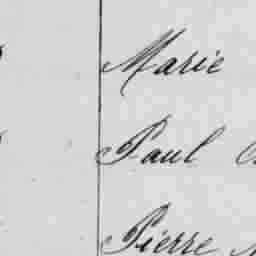 Marie
Paul
Pierre